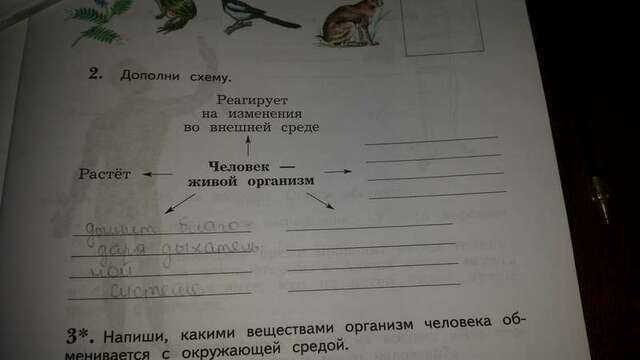 2. Дополни схему.
Реагирует
на изменения
во внешней среде
Растёт
Человек —
живой организм
дышит благо-
даря дыхатель-
ной
системе
3*. Напиши, какими веществами организм человека об-
менивается с окружающей средой.